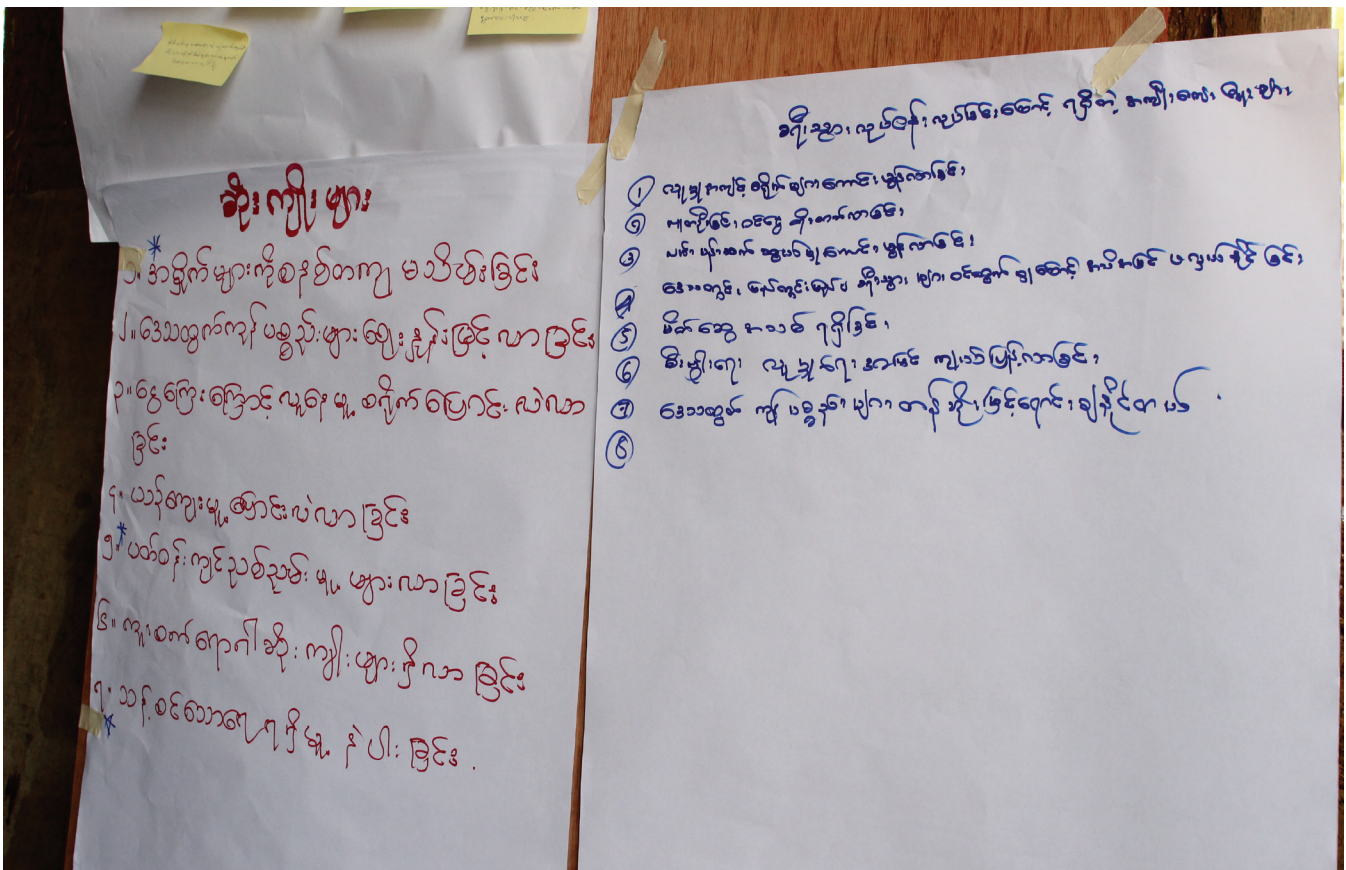 ဆိုးကျိုးများ
၁။ အမှိုက်များကိုစနစ်တကျ မသိမ်းခြင်း
၂။ ဒေသထွက်ကုန် ပစ္စည်းများ ဈေးနှုန်းမြင့် လာခြင်း
၃။ ငွေကြေးကြောင့် လူနေမှု စရိုက် ပြောင်း လဲလာ
ခြင်း
၄။ ယဉ်ကျေးမှု ပြောင်းလဲလာခြင်း
၅။ ပတ်ဝန်းကျင်ညစ်ညမ်းမှု များလာခြင်း
၆။ ကူးစက်ရောဂါဆိုးကျိုးများရှိလာခြင်း
၇။ သန့်စင်သောရေရရှိမှု နဲပါးခြင်း
ခရီးသွားလုပ်ငန်း လုပ်ခြင်းကြောင့် ရရှိတဲ့ အကျိုးကျေးဇူးများ
① လူမှုအကျင့် စရိုက်များကောင်းမွန်လာခြင်း
② ဝင်ငွေ တိုးတက်လာခြင်း
③ လမ်းပန်းဆက်သွယ်မှုကောင်းမွန်လာခြင်း
④ ဒေသတွင်း ခရီးသွားများ ဝင်ထွက်မှုကြောင့် အသိအမြင် ဖလှယ်နိုင်ခြင်း
⑤ မိတ်ဆွေ အသစ် ရရှိခြင်း
⑥ စီးပွါးရေး လူမှုရေး အမြင် ကျယ်ပြန့်လာခြင်း
⑦ ဒေသထွက် ကုန်ပစ္စည်းများ တန်ဘိုးမြင့်ရောင်းချနိုင်တယ်
⑧